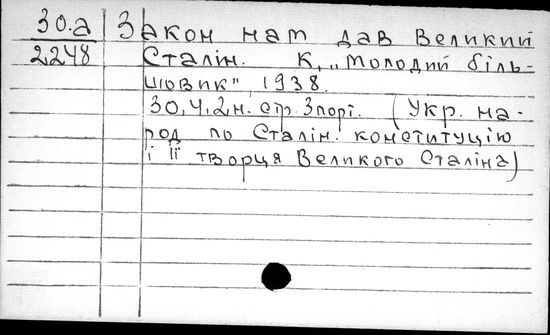 30.а Закон нам дав Великий
2248 Сталін. К, „Молодий біль-
шовик", 1938.
30,4,2н. стр. З порт. (Укр. на-
род по Сталін. конституцію
і її творця Великого Сталіна)